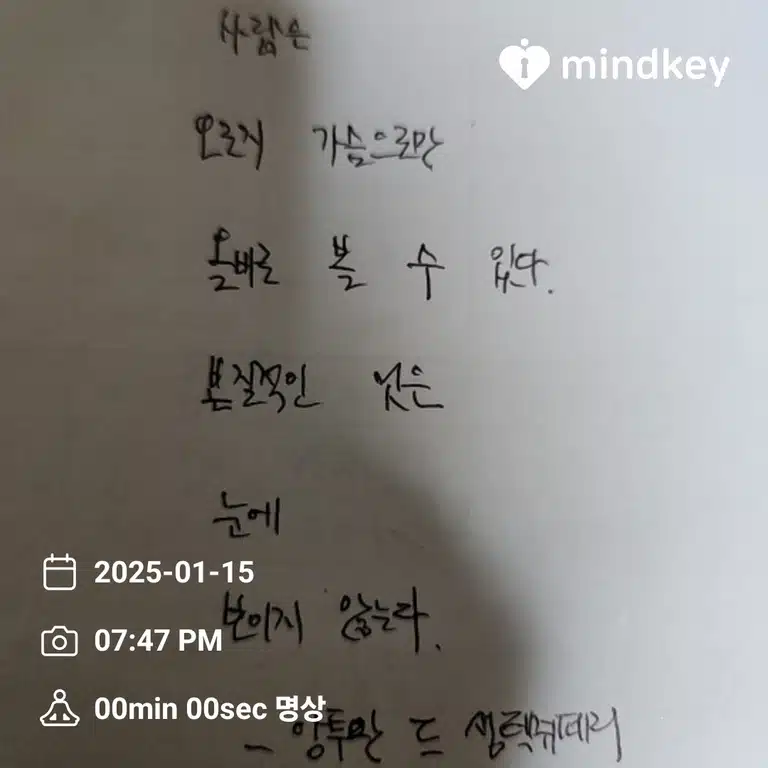 사람은
mindkey
오로지 가슴으로만
올바로 볼 수 있다.
본질적인 것은
눈에
2025-01-15
보이지 않는다.
07:47 PM
00min 00sec 명상
- 앙투안 드 생텍쥐페리